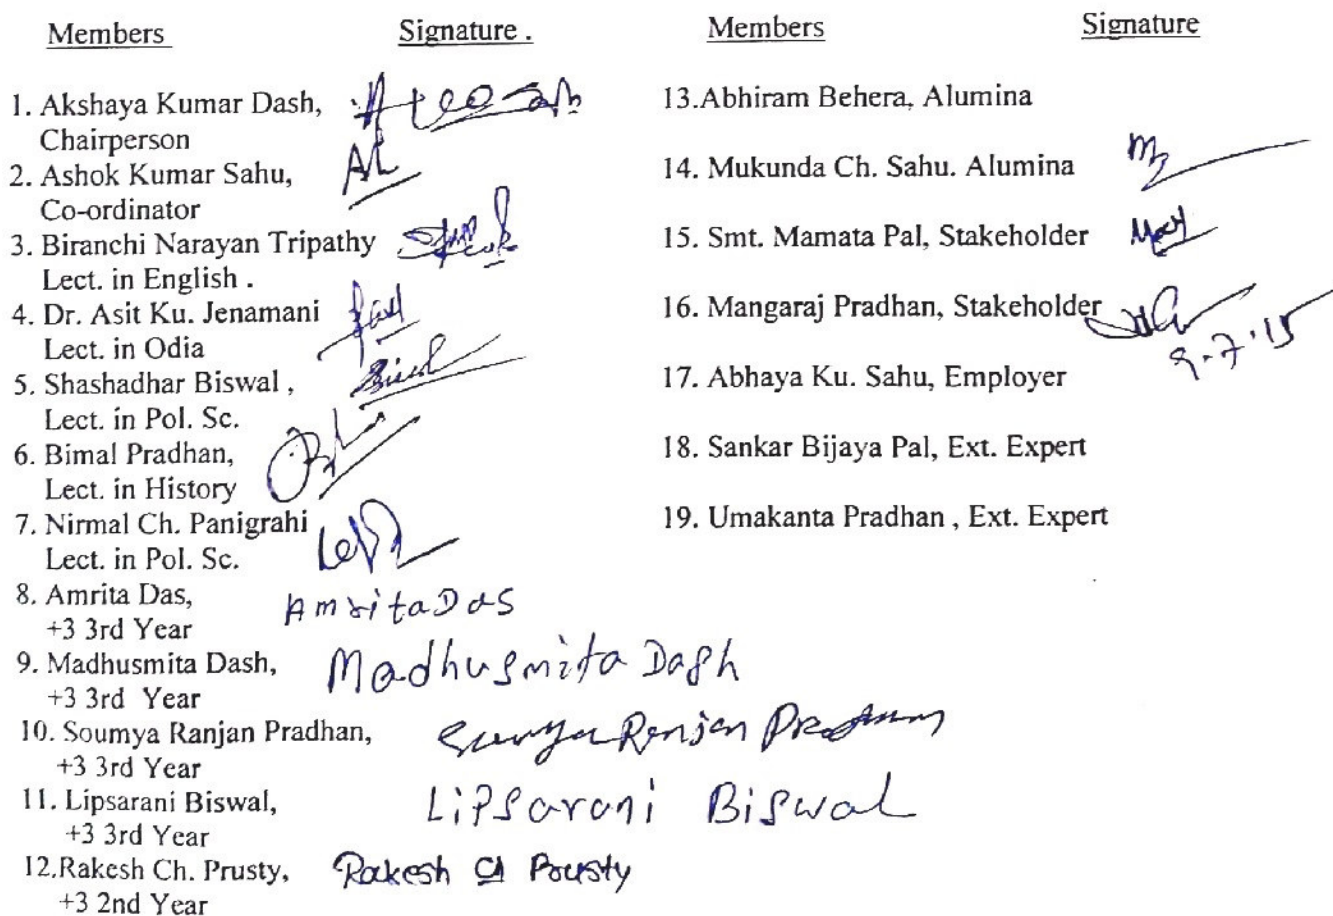 Members Signature .
1. Akshaya Kumar Dash,
Chairperson
2. Ashok Kumar Sahu,
Co-ordinator
3. Biranchi Narayan Tripathy
Lect. in English .
4. Dr. Asit Ku. Jenamani
Lect. in Odia
5. Shashadhar Biswal ,
Lect. in Pol. Sc.
6. Bimal Pradhan,
Lect. in History
7. Nirmal Ch. Panigrahi
Lect. in Pol. Sc.
8. Amrita Das, Amrita Das
+3 3rd Year
9. Madhusmita Dash, Madhusmita Dash
+3 3rd Year
10. Soumya Ranjan Pradhan, Ranjan Pradhan
+3 3rd Year
11. Lipsarani Biswal, Lipsarani Biswal
+3 3rd Year
12.Rakesh Ch. Prusty, Rakesh Ch Prusty
+3 2nd Year
Members Signature
13.Abhiram Behera, Alumina
14. Mukunda Ch. Sahu. Alumina
15. Smt. Mamata Pal, Stakeholder
16. Mangaraj Pradhan, Stakeholder
9.7.15
17. Abhaya Ku. Sahu, Employer
18. Sankar Bijaya Pal, Ext. Expert
19. Umakanta Pradhan , Ext. Expert